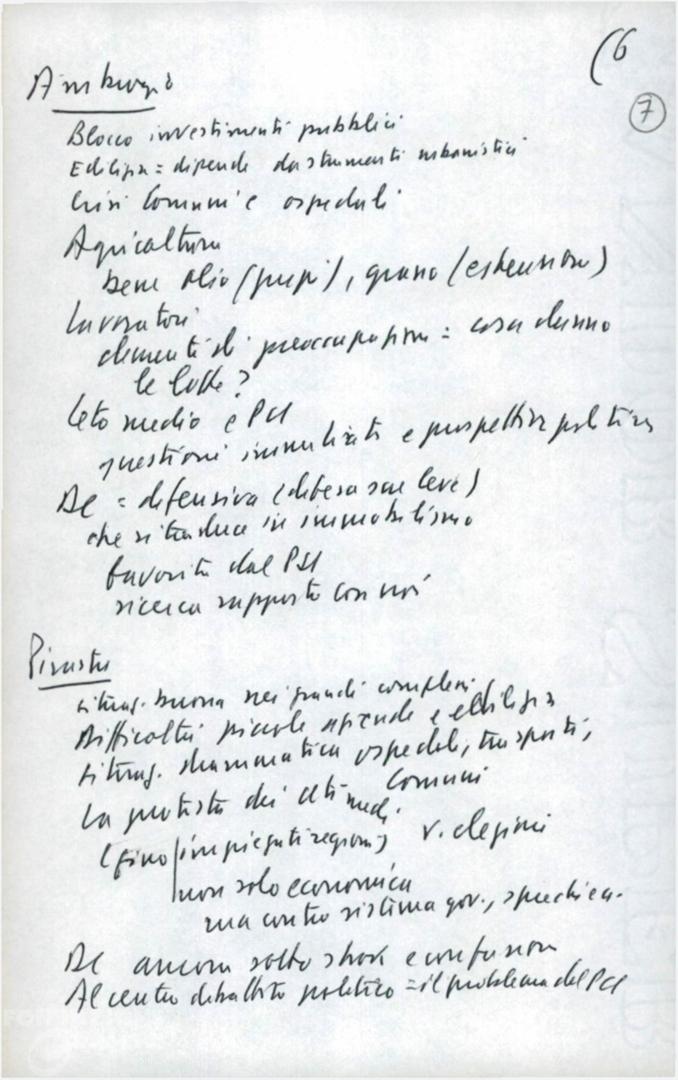 (6
7
Ambrogio
Blocco investimenti pubblici
Edilizia = dipende da strumenti urbanistici
Crisi Comuni e ospedali
Agricoltura
bene olio (prezzi), grano (estensione)
Lavoratori
elementi di preoccupazione = cosa danno
le lotte?
Ceto medio e PCI
questioni immediate e prospettiva politica
DC = difensiva (difesa sue leve)
che si traduce in immobilismo
favorito dal PSI
ricerca rapporto con noi
Pirastu
situaz. buona nei grandi complessi
Difficoltà piccole aziende e edilizia
situaz. drammatica ospedali, trasporti,
Comuni
La protesta dei ceti medi
(fino impiegati regione) v. elezioni
non solo economica
ma contro sistema gov.,
DC ancora sotto shock e confusione
Al centro dibattito politico = il problema del PCI